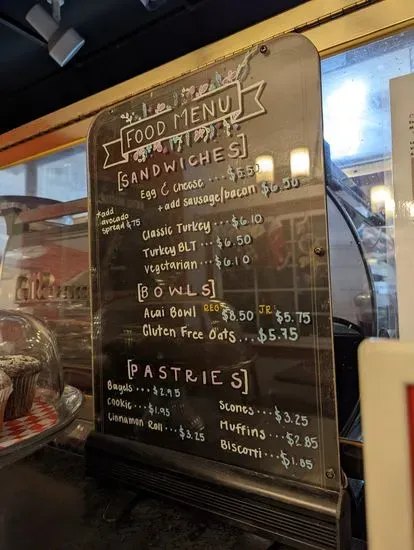 FOOD MENU
[SANDWICHES]
Egg & Cheese ... $5.50
+ add sausage/bacon $6.50
*add avocado spread $.75
Classic Turkey ... $6.10
Turkey BLT ... $6.50
Vegetarian ... $6.10
[BOWLS]
Acai Bowl REG $8.50 JR $5.75
Gluten Free Oats ... $5.75
[PASTRIES]
Bagels ... $2.95
Cookie ... $1.95
Cinnamon Roll ... $3.25
Scones ... $3.25
Muffins ... $2.85
Biscotti ... $1.85